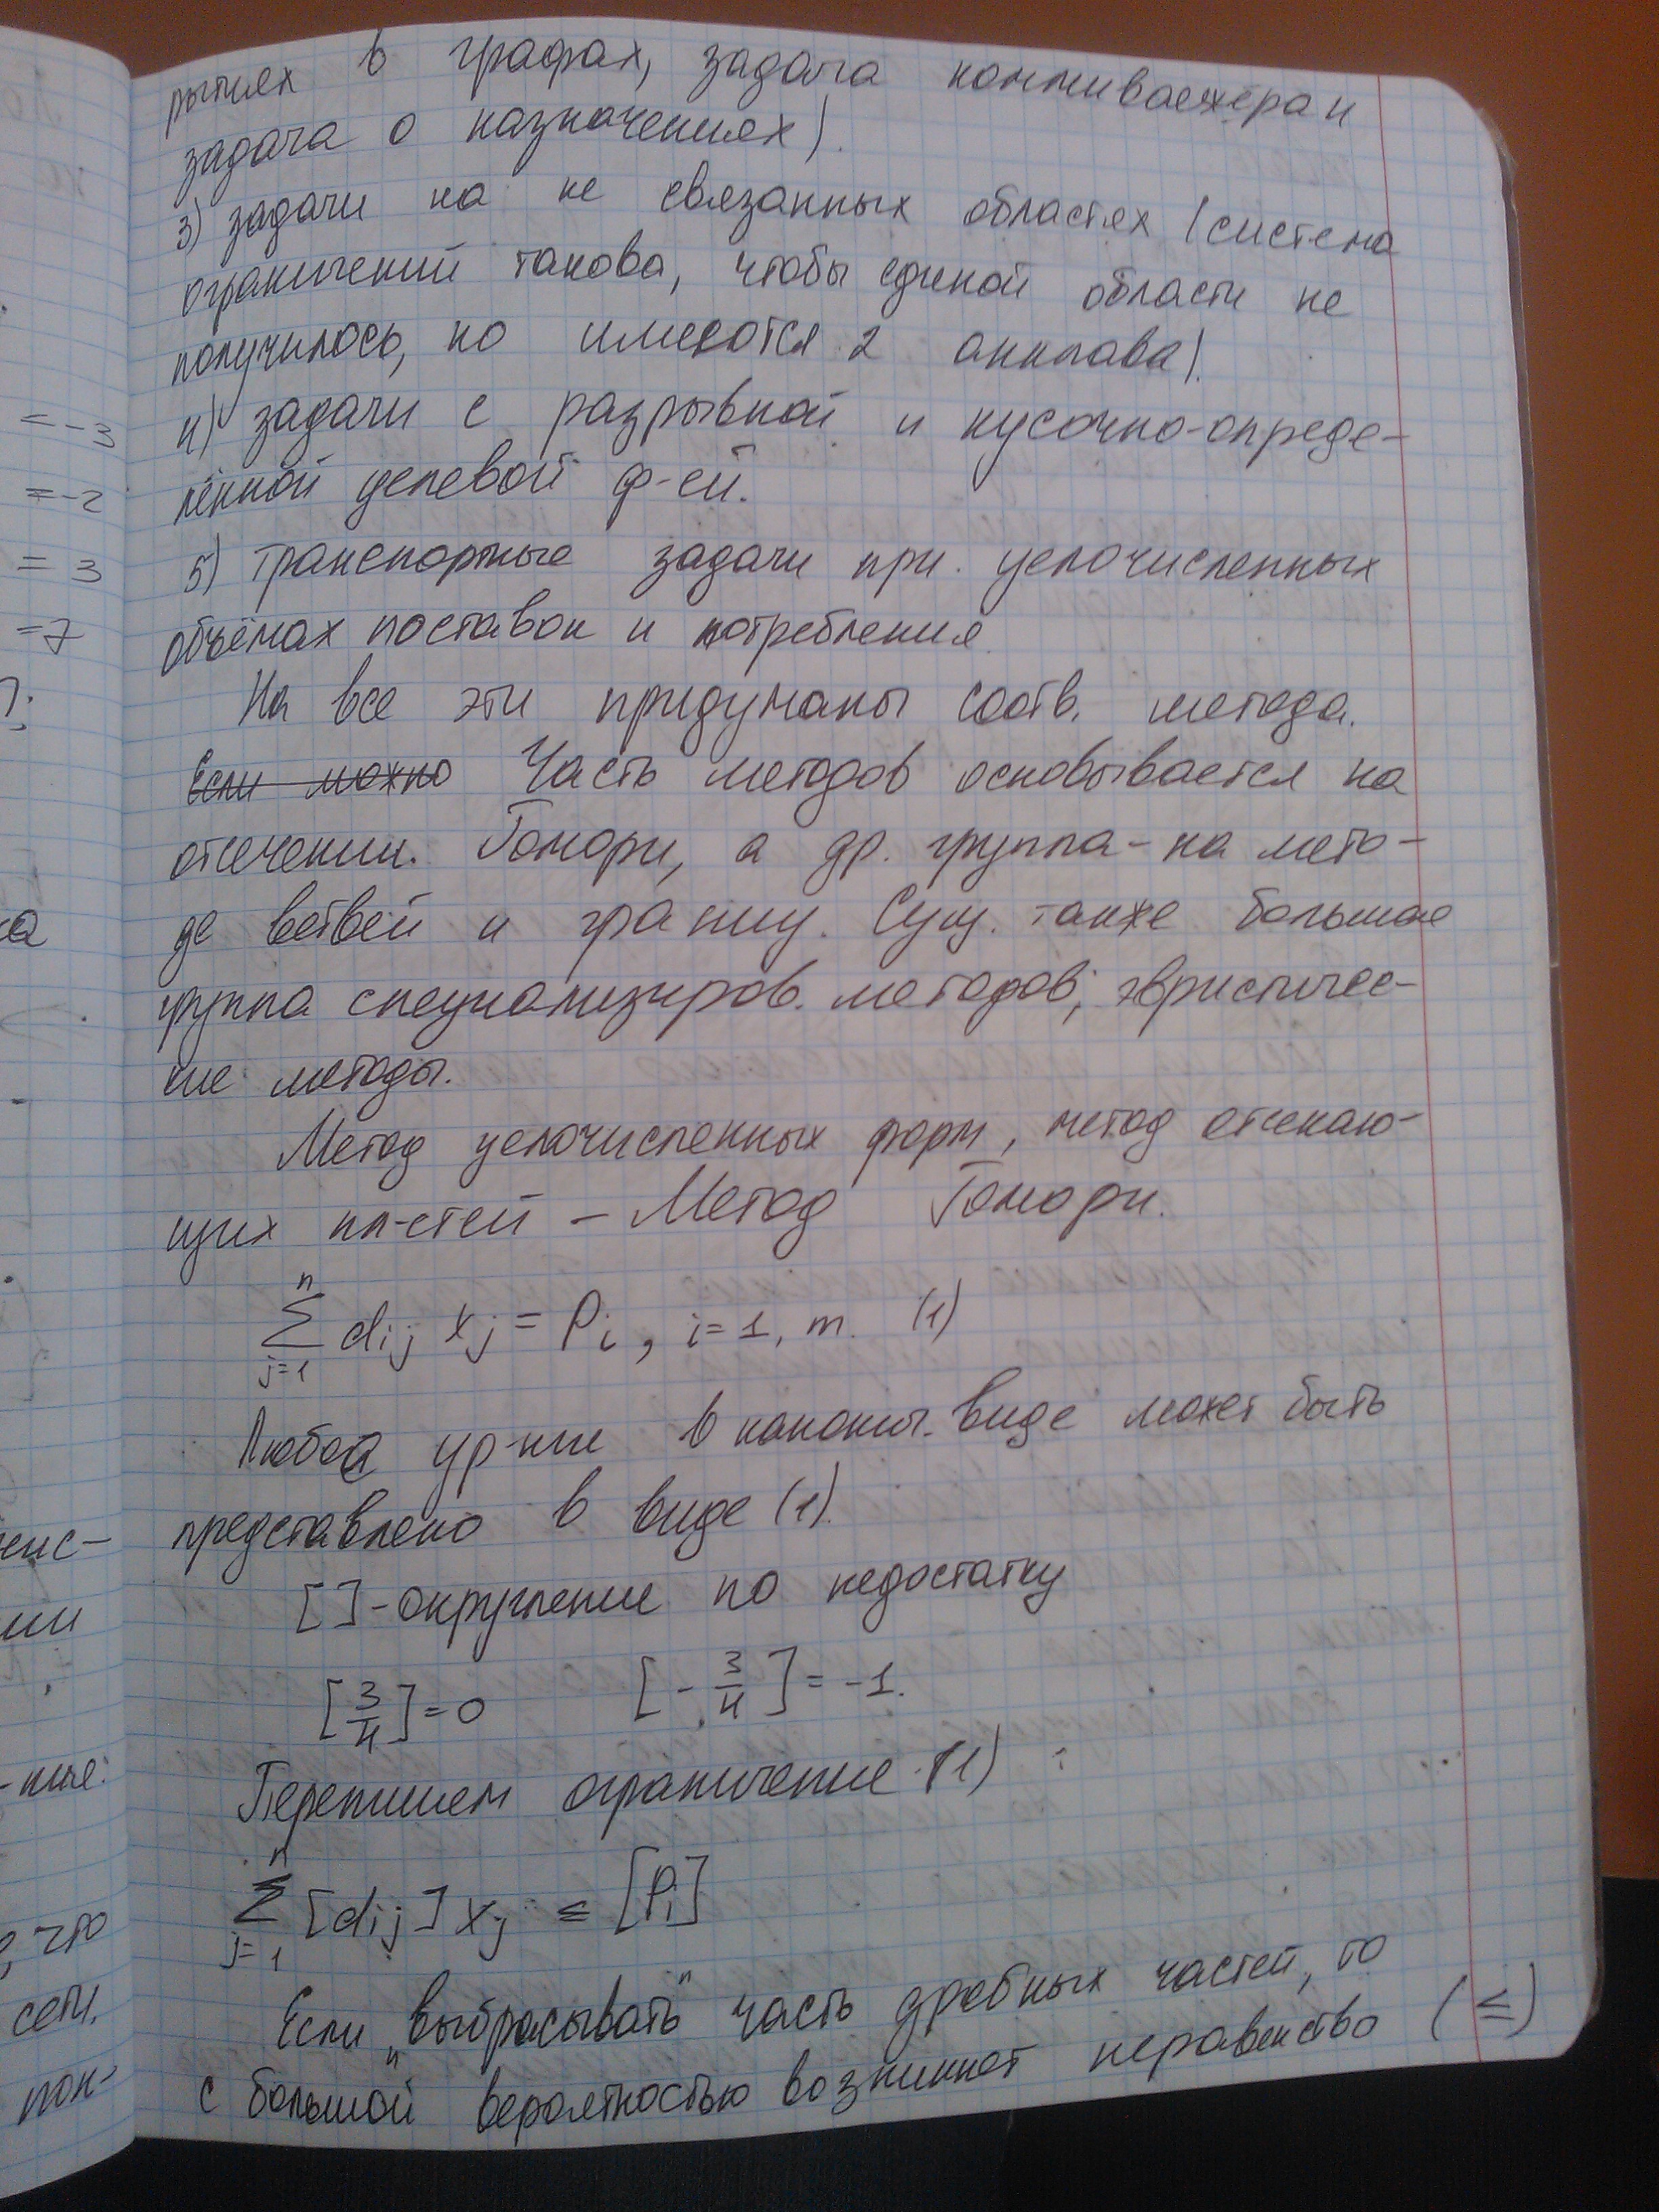 рытиях в графах, задача коммивояжера и
задача о назначениях).
3) задачи на не связанных областях (система
ограничений такова, чтобы единой области не
получилось, но имеются 2 анклава).
4) задачи с разрывной и кусочно-опреде-
лённой целевой ф-ей.
5) транспортные задачи при целочисленных
объёмах поставок и потребления.
На все эти придуманы соотв. метода.
Если можно Часть методов основывается на
отсечении Гомори, а др. группа - на мето-
де ветвей и границ. Сущ. также большая
группа специализиров. методов; эвристичес-
кие методы.
Метод целочисленных форм, метод отсекаю-
щих пл-стей - Метод Гомори.
n
∑ dij xj = Pi, i=1, m. (1)
j=1
Любое ур-ние в канонич. виде может быть
представлено в виде (1).
[ ] - округление по недостатку
[3/4] = 0 [-3/4] = -1.
Перепишем ограничение (1) :
n
∑ [dij] xj ≤ [Pi]
j=1
Если „выбрасывать" часть дробных частей, то
с большой вероятностью возникнет неравенство (≤)
= -3
= -2
= 3
= 7
ка
-ние:
, что
сети.